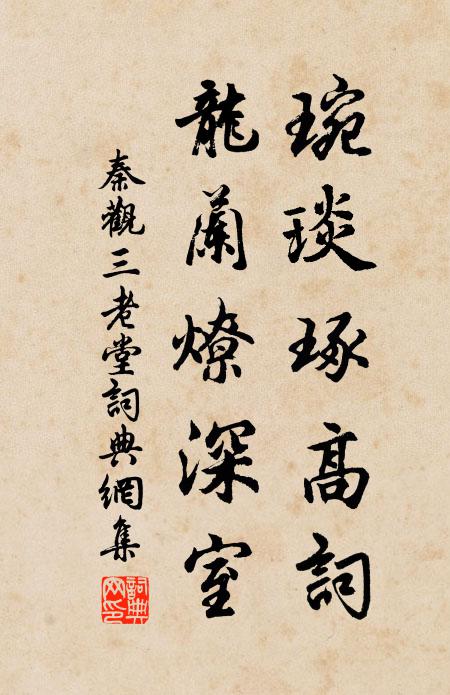 琬琰琢高詞
龍蘭燎深室
秦觀三老堂詞典網集
詞典網印